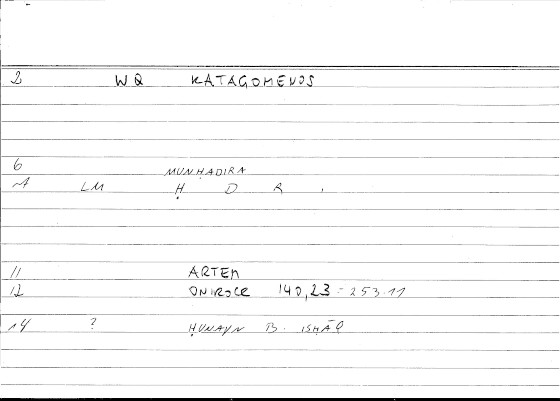 2 WQ KATAGOMENOS
6 MUNḤADIRA
LM Ḥ D R .
11 ARTEM
12 ONIROCR 140,23 = 253.11
14 ? ḤUNAYN B. ISḤĀQ